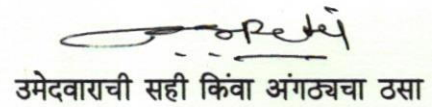 उमेदवाराची सही किंवा अंगठ्यचा ठसा